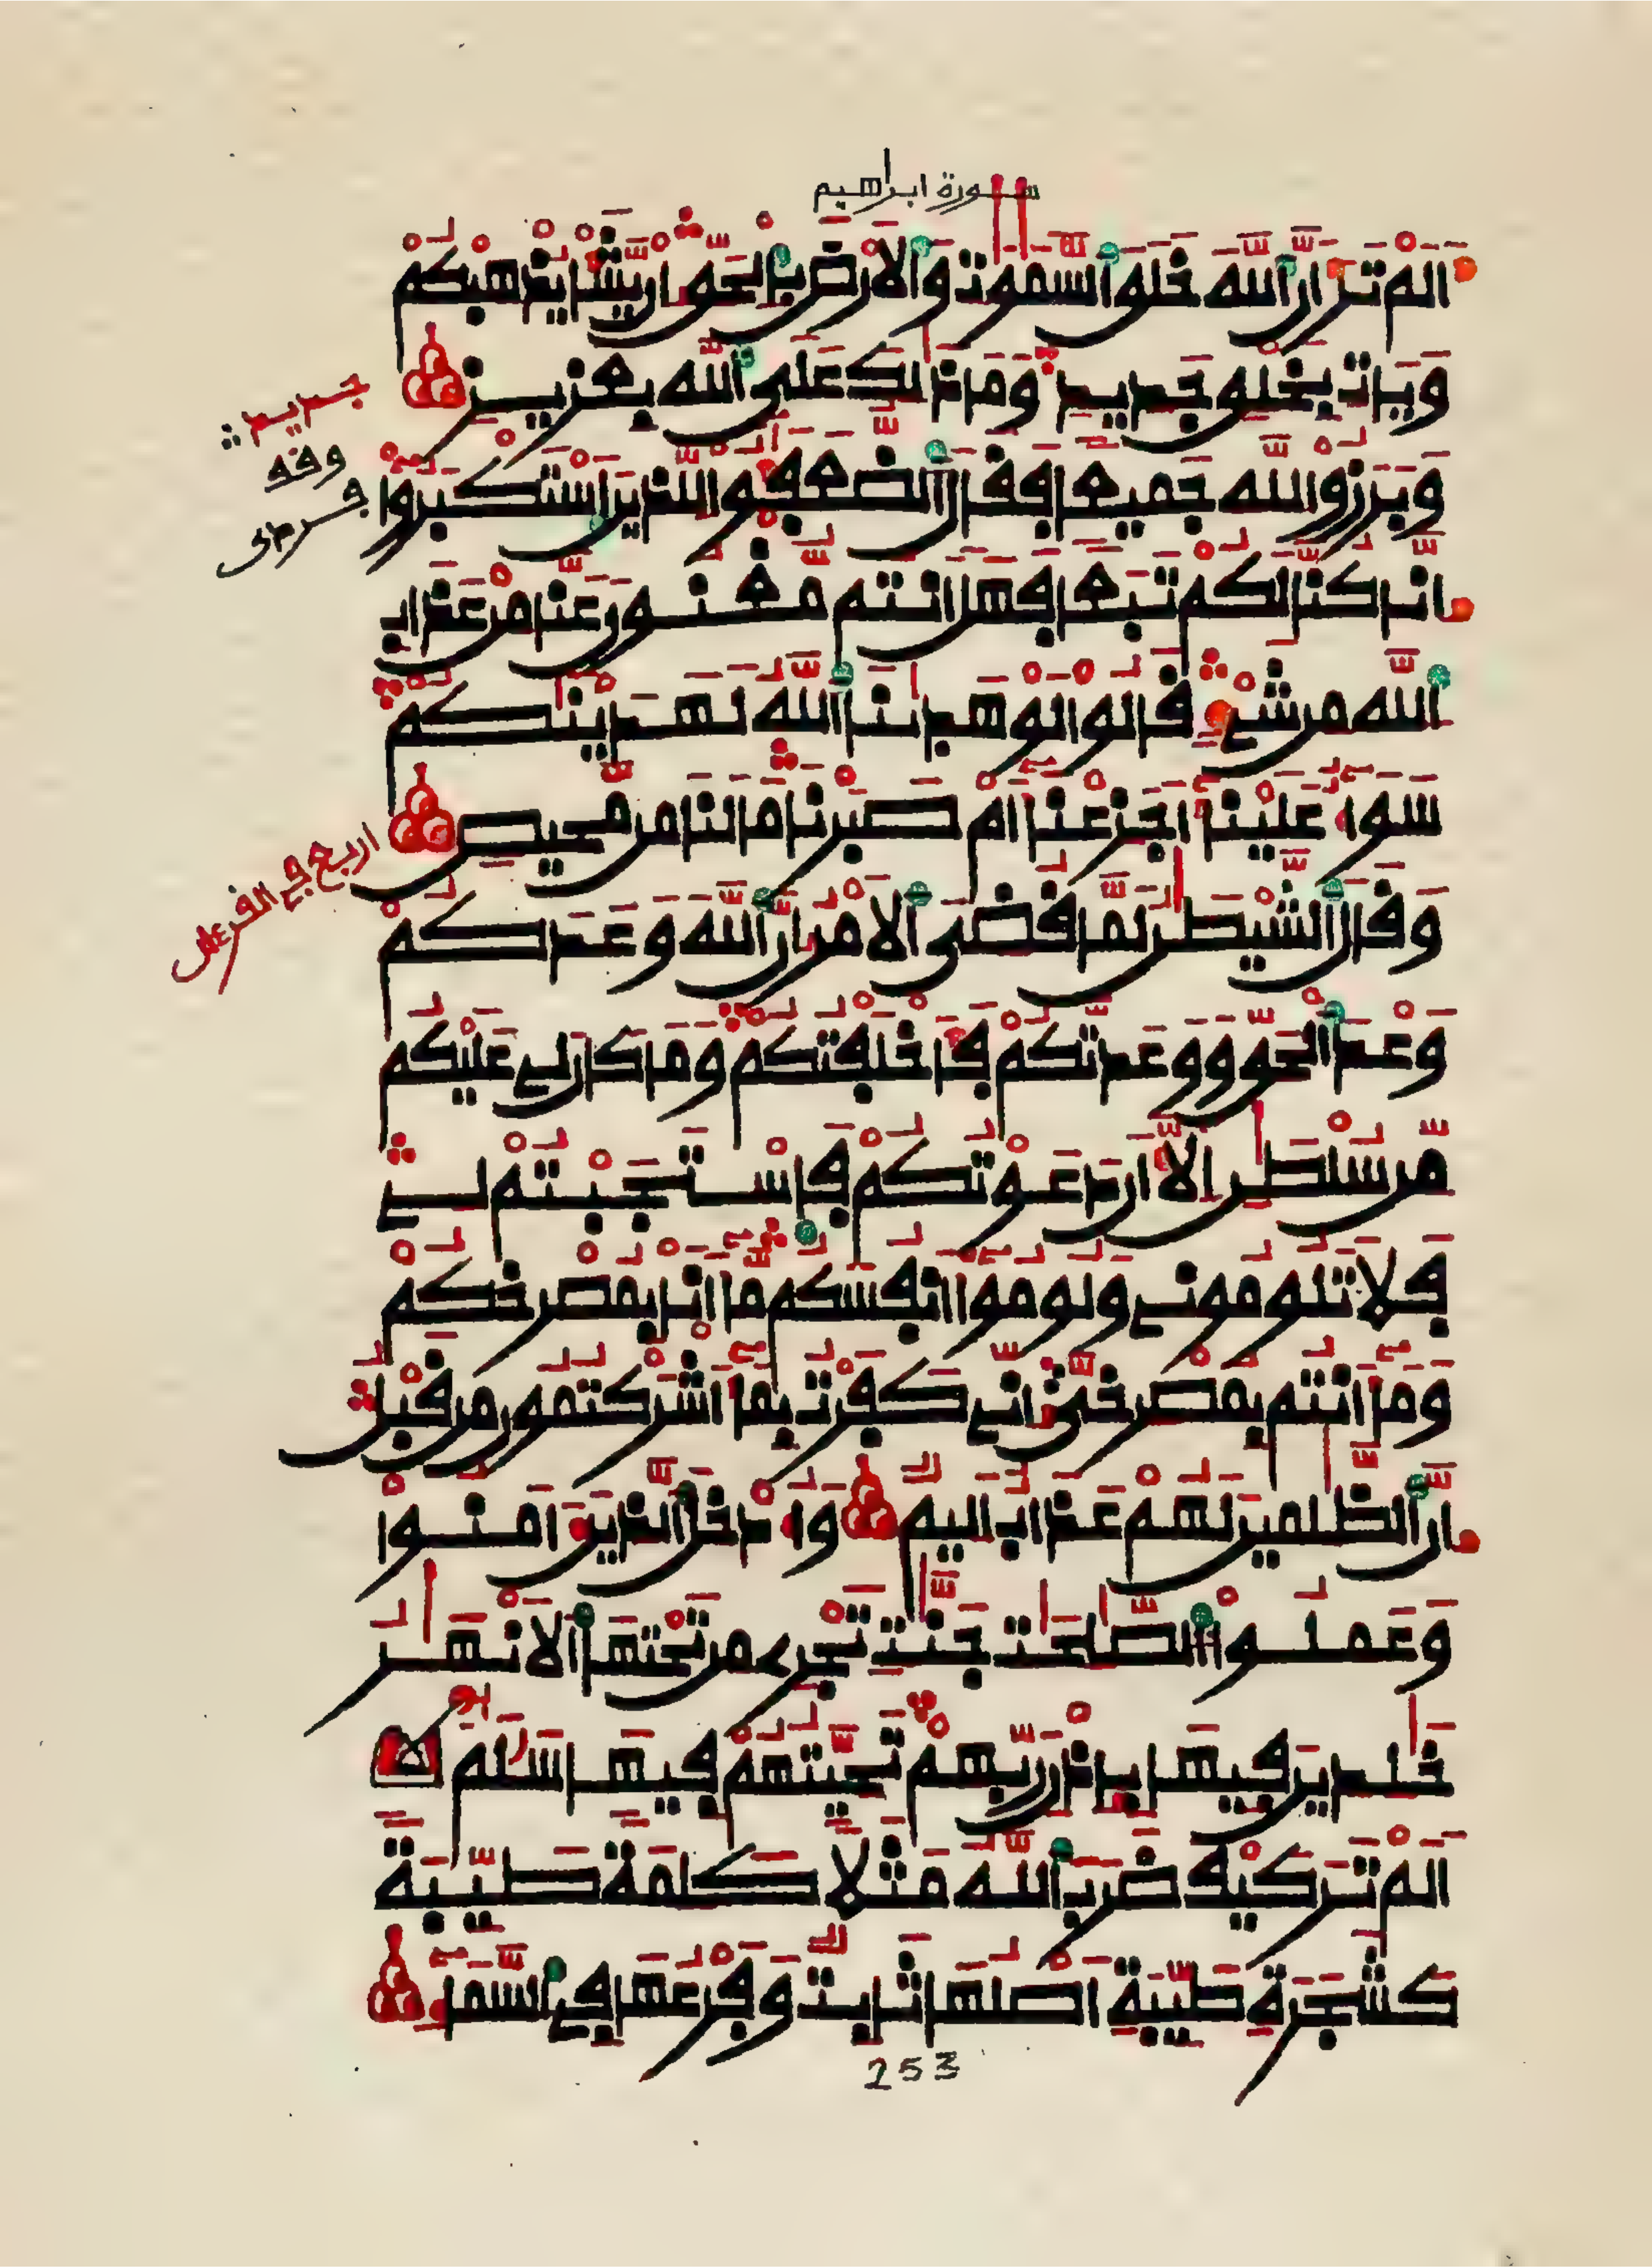 سورة ابراهيم
اَلَمْ تَرَ أَنَّ اَللَّهَ خَلَقَ اَلسَّمَٰوَٰتِ وَالَارْضَ بِالْحَقِّ إِنْ يَّشَأْ يُذْهِبْكُمْ
وَيَاتِ بِخَلْقٍ جَدِيدٍ وَمَا ذَٰلِكَ عَلَى اَللَّهِ بِعَزِيزٍ
جديد
وقف
وَبَرَزُوا لِلَّهِ جَمِيعاً فَقَالَ اَلضُّعَفَٰؤُا لِلَّذِينَ اَسْتَكْبَرُوا
إِنَّا كُنَّا لَكُمْ تَبَعاً فَهَلْ أَنتُم مُّغْنُونَ عَنَّا مِنْ عَذَابِ
اِللَّهِ مِن شَيْءٍ قَالُوا لَوْ هَدَىٰنَا اَللَّهُ لَهَدَيْنَٰكُمْ
سَوَاءٌ عَلَيْنَا أَجَزِعْنَا أَمْ صَبَرْنَا مَا لَنَا مِن مَّحِيصٍ
وَقَالَ اَلشَّيْطَٰنُ لَمَّا قُضِيَ اَلَامْرُ إِنَّ اَللَّهَ وَعَدَكُمْ
وَعْدَ اَلْحَقِّ وَوَعَدتُّكُمْ فَأَخْلَفْتُكُمْ وَمَا كَانَ لِي عَلَيْكُم
مِّن سُلْطَٰنٍ إِلَّا أَن دَعَوْتُكُمْ فَاسْتَجَبْتُمْ لِي
فَلَا تَلُومُونِي وَلُومُوا أَنفُسَكُم مَّا أَنَا بِمُصْرِخِكُمْ
وَمَا أَنتُم بِمُصْرِخِيَّ إِنِّي كَفَرْتُ بِمَا أَشْرَكْتُمُونِ مِن قَبْلُ
إِنَّ اَلظَّٰلِمِينَ لَهُمْ عَذَابٌ أَلِيمٌ وَأُدْخِلَ اَلَّذِينَ ءَامَنُوا
وَعَمِلُوا اَلصَّٰلِحَٰتِ جَنَّٰتٍ تَجْرِي مِن تَحْتِهَا اَلَانْهَٰرُ
خَٰلِدِينَ فِيهَا بِإِذْنِ رَبِّهِمْ تَحِيَّتُهُمْ فِيهَا سَلَٰمٌ
اَلَمْ تَرَ كَيْفَ ضَرَبَ اَللَّهُ مَثَلاً كَلِمَةً طَيِّبَةً
كَشَجَرَةٍ طَيِّبَةٍ اَصْلُهَا ثَابِتٌ وَفَرْعُهَا فِي اِلسَّمَاءِ
253